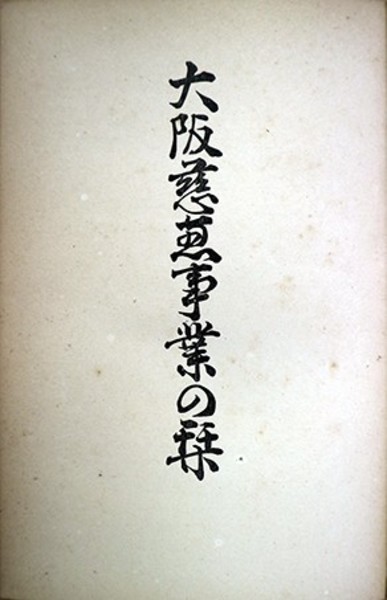 大阪慈恵事業の栞